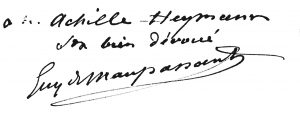 à M. Achille Heymann
son bien dévoué
Guy de Maupassant